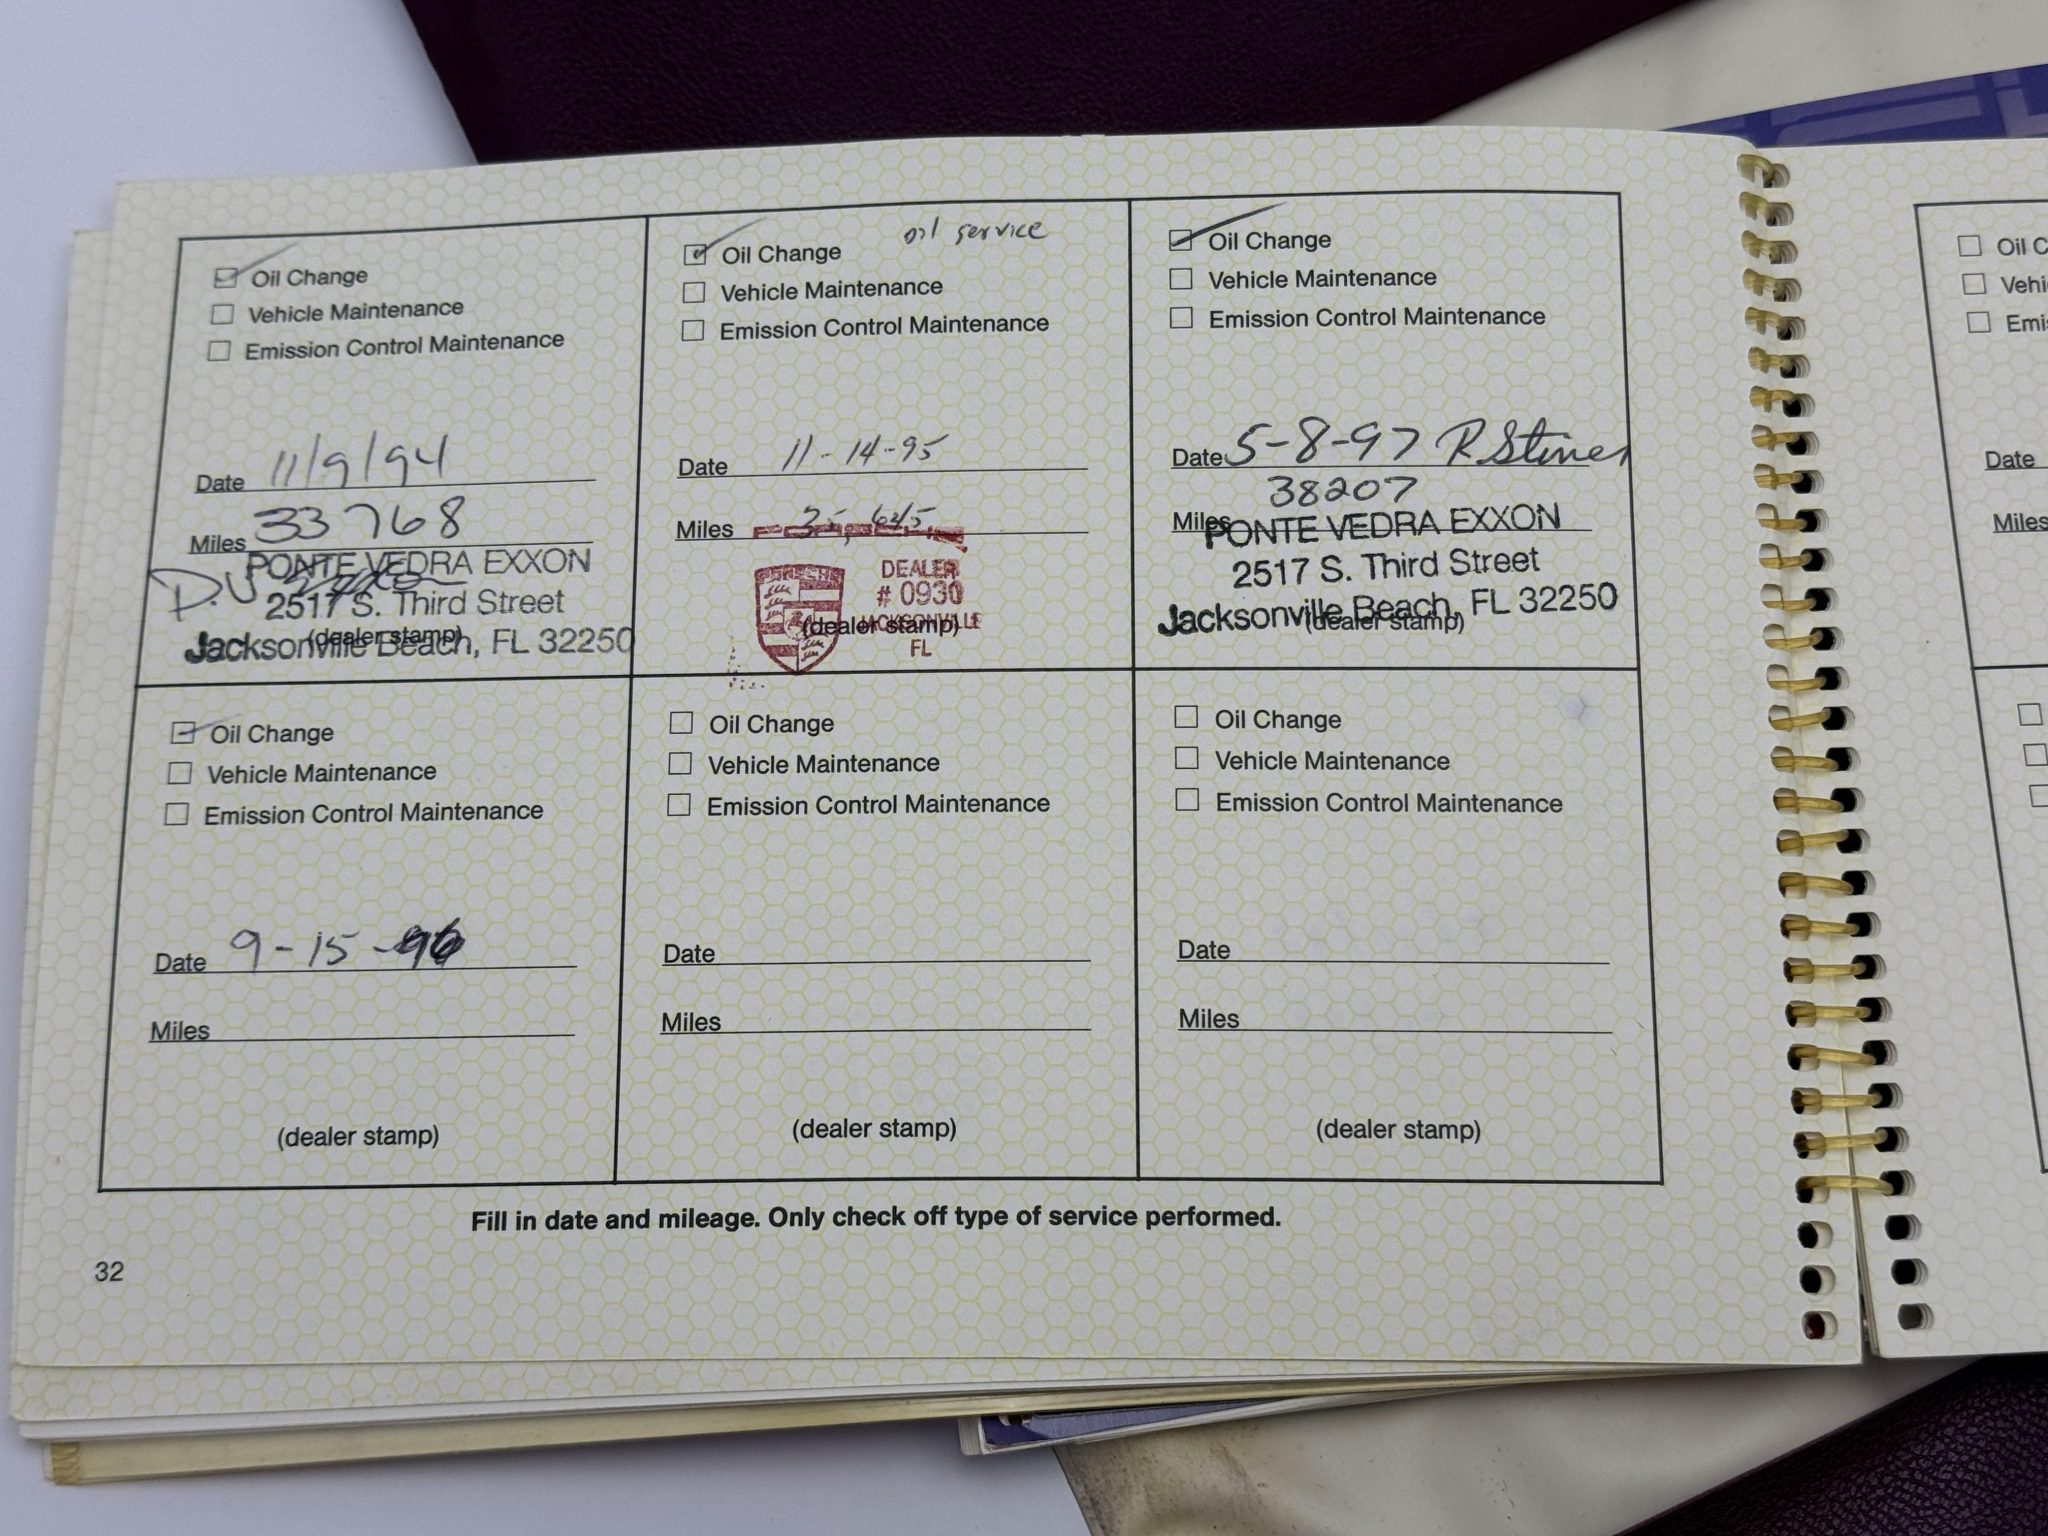 Oil Change
Vehicle Maintenance
Emission Control Maintenance
Date 11/9/94
Miles 33768
PONTE VEDRA EXXON
D.V
2517 S. Third Street
(dealer stamp)
Jacksonville Beach, FL 32250
oil service
Oil Change
Vehicle Maintenance
Emission Control Maintenance
Date 11-14-95
Miles 35,645
PORSCHE
DEALER
# 0930
JACKSONVILLE
(dealer stamp)
FL
Oil Change
Vehicle Maintenance
Emission Control Maintenance
Date 5-8-97 R Stiner
38207
Miles
PONTE VEDRA EXXON
2517 S. Third Street
Jacksonville Beach, FL 32250
(dealer stamp)
Oil Change
Vehicle Maintenance
Emission Control Maintenance
Date 9-15-96
Miles
(dealer stamp)
Oil Change
Vehicle Maintenance
Emission Control Maintenance
Date
Miles
(dealer stamp)
Oil Change
Vehicle Maintenance
Emission Control Maintenance
Date
Miles
(dealer stamp)
Fill in date and mileage. Only check off type of service performed.
32
Oil C
Vehi
Emis
Date
Miles